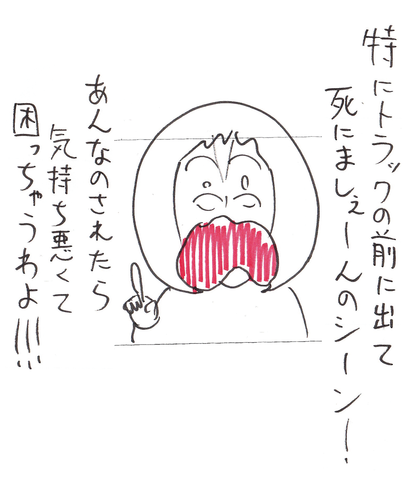 特にトラックの前に出て
死にましぇーんのシーン!
あんなのされたら
気持ち悪くて
困っちゃうわよ!!!